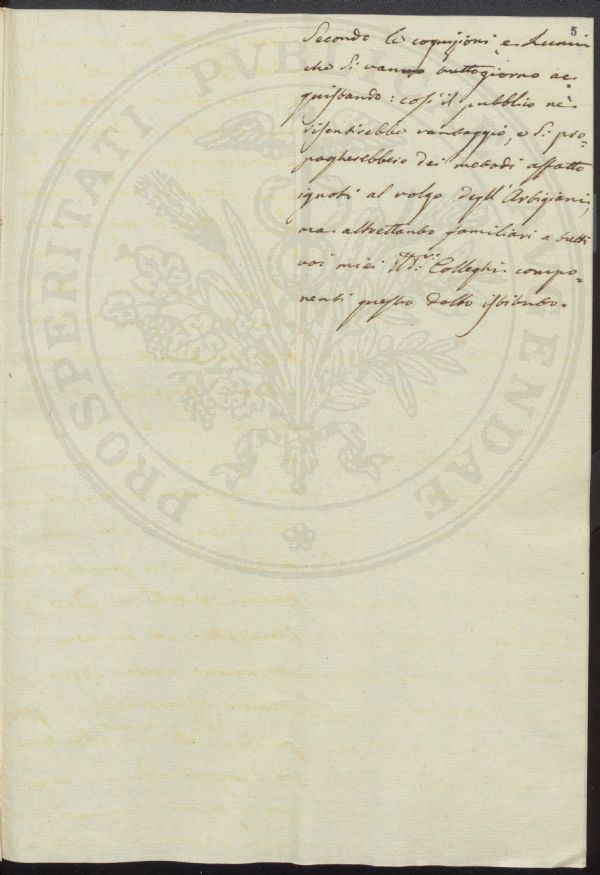 5
Secondo le cognizioni e Lumi
che si vanno tuttogiorno ac=
quistando: così il pubblico nè
risentirebbe vantaggio, e si pro=
pagherebbero dei metodi affatto
ignoti al volgo degli Artigiani,
ma altrettanto familiari a tutti
voi miei Colleghi compo=
nenti questo dotto istituto.
PROSPERITATI PVBLICAE AVGENDAE